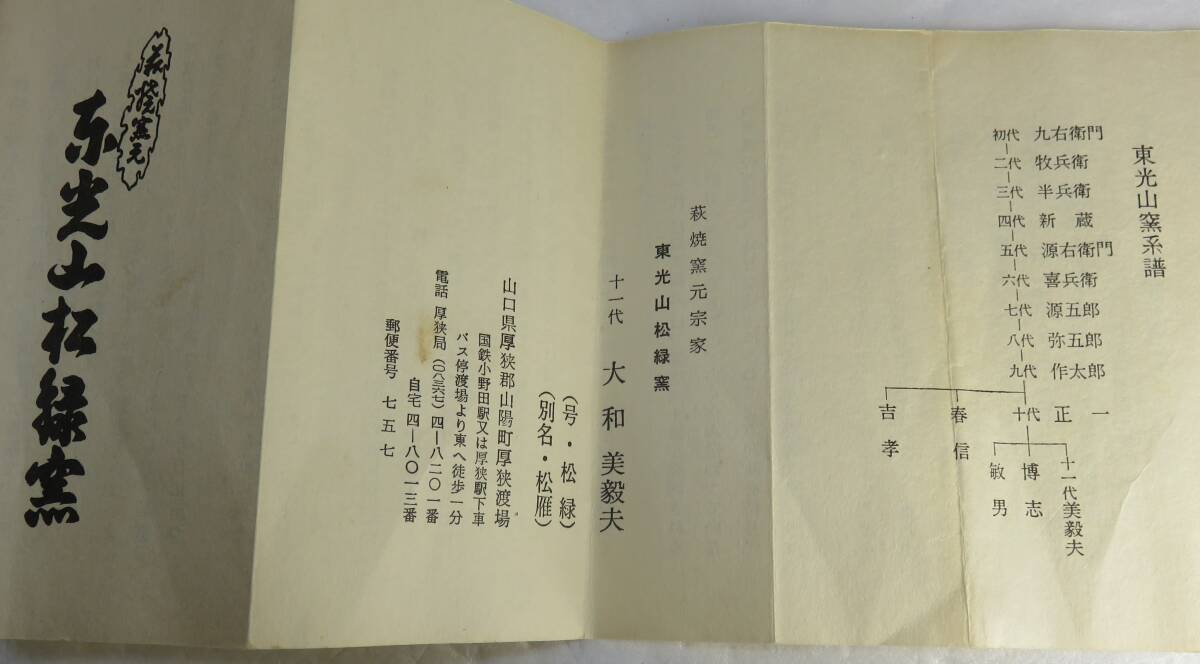 東光山窯系譜
初代 九右衛門
二代 牧兵衛
三代 半兵衛
四代 新蔵
五代 源右衛門
六代 喜兵衛
七代 源五郎
八代 弥五郎
九代 作太郎
十代 正一
春信
吉孝
十一代美毅夫
博志
敏男
萩焼窯元宗家
東光山松緑窯
十一代 大和美毅夫
(号・松緑)
(別名・松雁)
山口県厚狭郡山陽町厚狭渡場
国鉄小野田駅又は厚狭駅下車
バス停渡場より東へ徒歩一分
電話 厚狭局(〇八三六七)四―八二〇一番
自宅 四―八〇一三番
郵便番号 七五七
萩焼窯元
東光山松緑窯